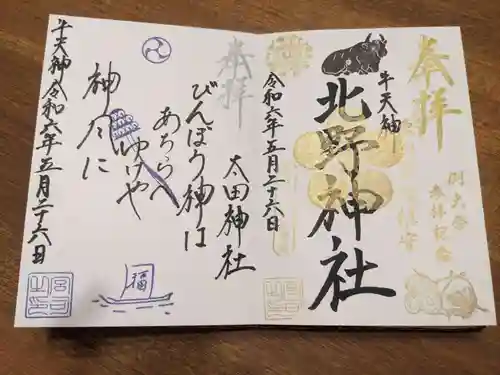 奉拝
例大祭
参拝記念
牛天神
北野神社
令和六年五月二十六日
奉拝
太田神社
びんぼう神は
あちらへ
ゆけや
神風に
福
牛天神
令和六年五月二十六日